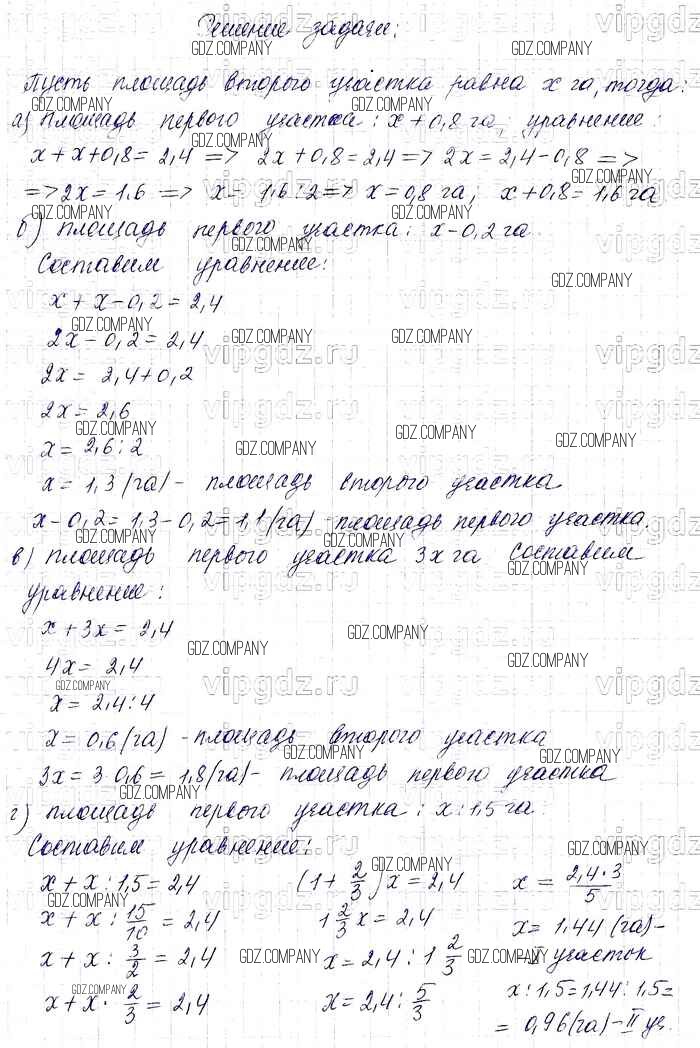 Решение задачи:
Пусть площадь второго участка равна x га, тогда:
а) площадь первого участка: x+0,8 га; уравнение:
x+x+0,8=2,4 => 2x+0,8=2,4 => 2x=2,4-0,8 =>
=> 2x=1,6 => x= 1,6:2 => x=0,8 га; x+0,8=1,6 га
б) площадь первого участка: x-0,2 га
Составим уравнение:
x+x-0,2=2,4
2x-0,2=2,4
2x= 2,4+0,2
2x=2,6
x= 2,6:2
x= 1,3 (га) - площадь второго участка
x-0,2=1,3-0,2=1,1 (га) - площадь первого участка.
в) площадь первого участка 3x га Составим
уравнение:
x+3x= 2,4
4x= 2,4
x= 2,4:4
x= 0,6 (га) - площадь второго участка
3x=3·0,6= 1,8 (га) - площадь первого участка
г) площадь первого участка: x:1,5 га
Составим уравнение:
x+x:1,5=2,4
x+x:15/10=2,4
x+x:3/2=2,4
x+x·2/3=2,4
(1+2/3)x=2,4
1 2/3 x=2,4
x=2,4:1 2/3
x=2,4:5/3
x= 2,4·3/5
x= 1,44 (га) -
- II участок
x:1,5=1,44:1,5=
= 0,96 (га) - II уч.
GDZ.COMPANY
vipgdz.ru